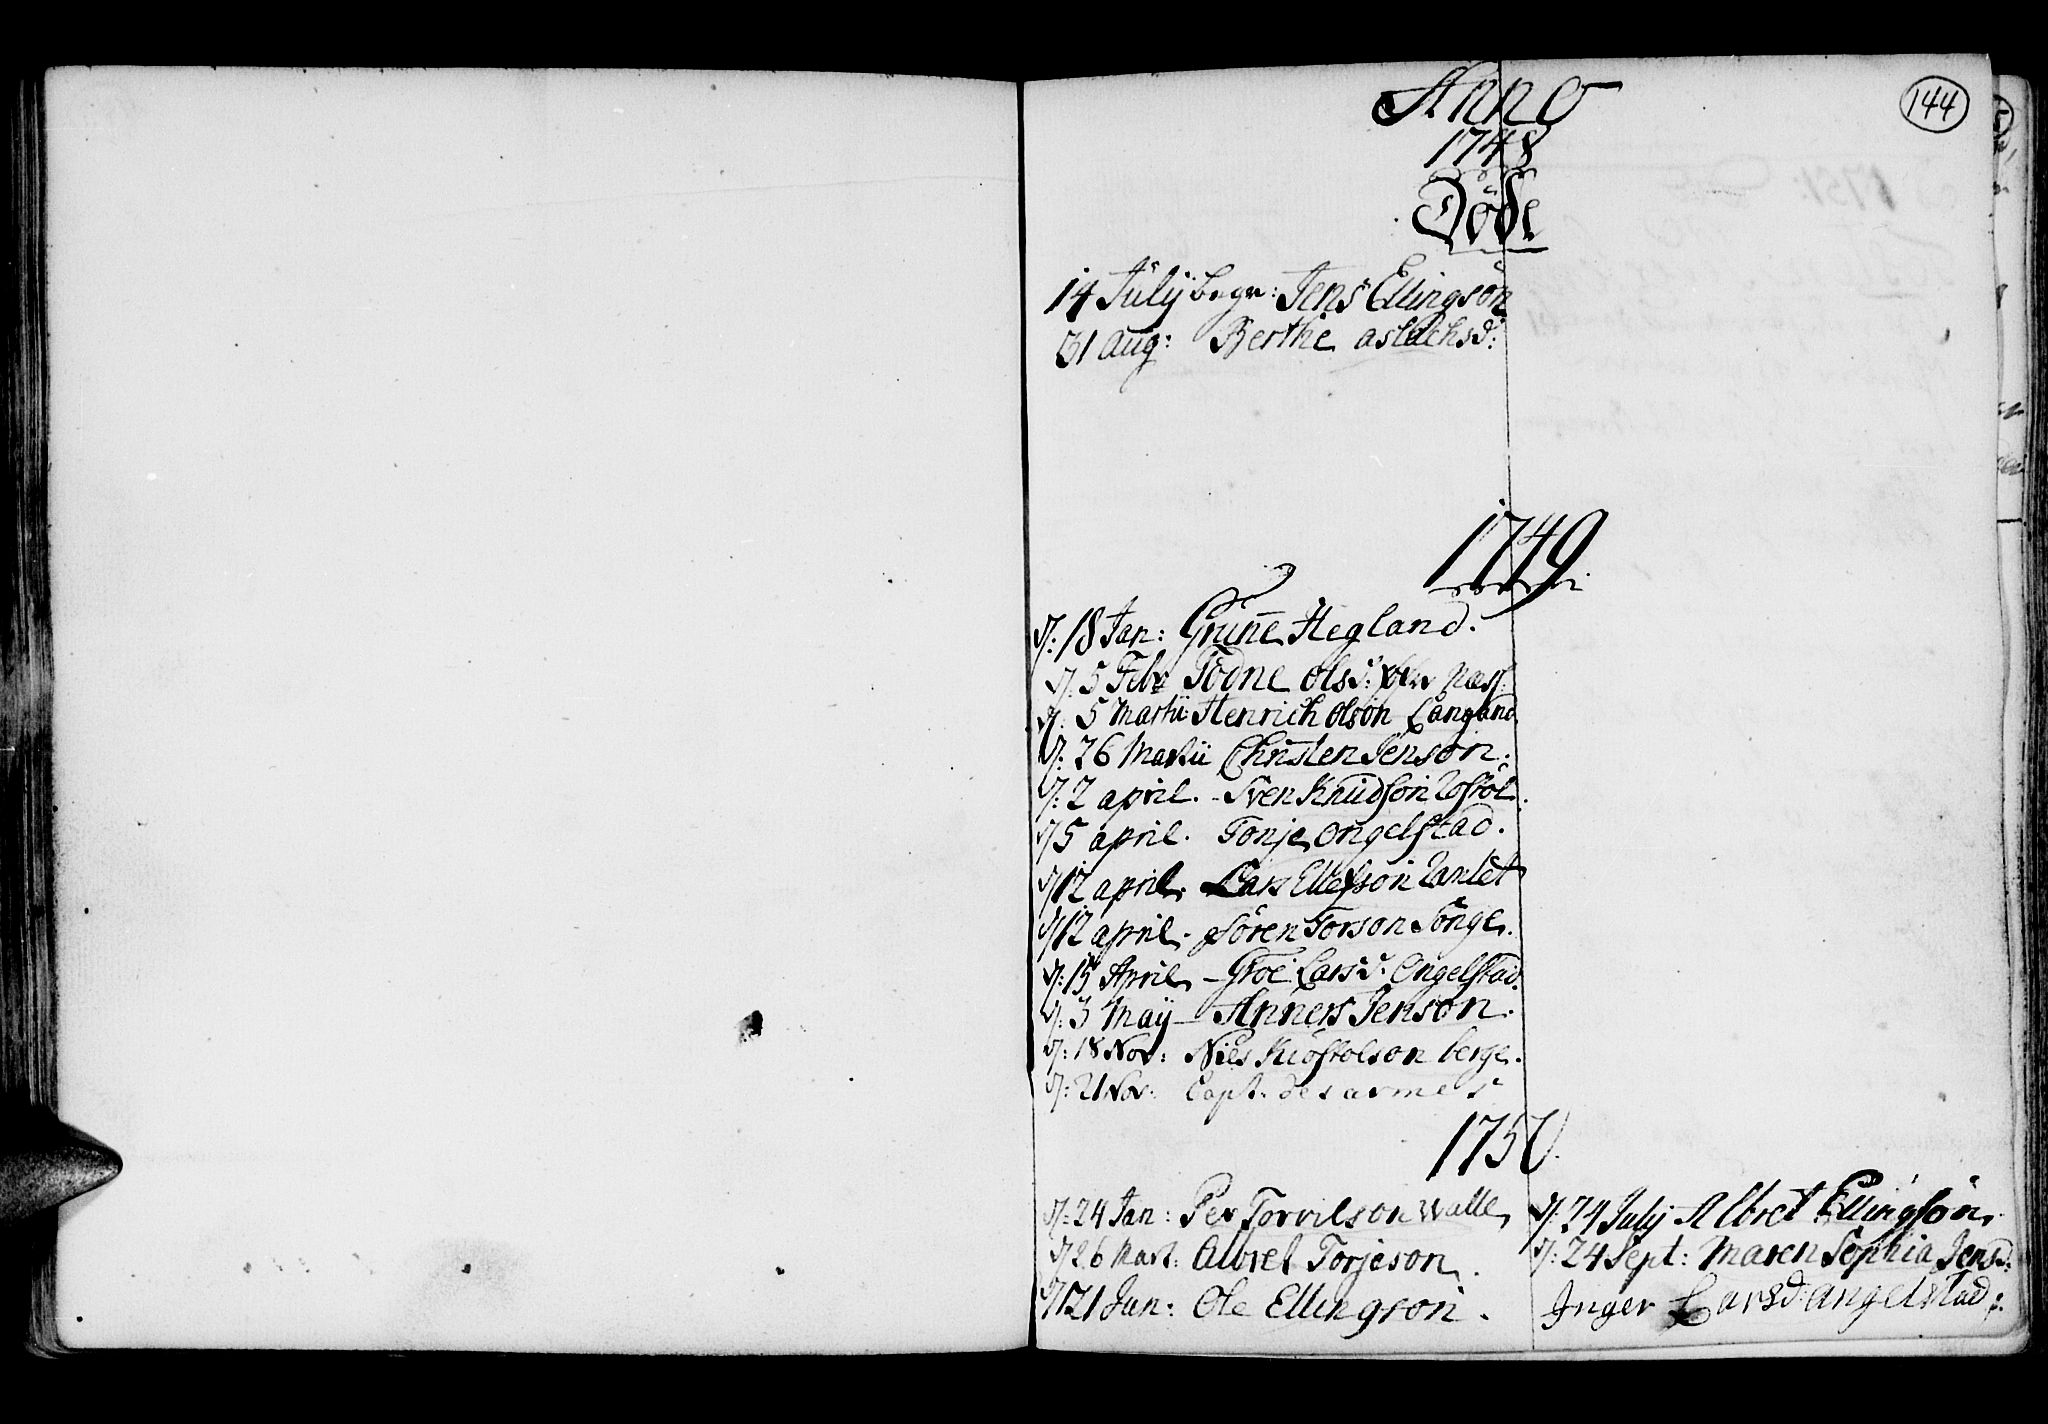 144
Anno
1748
Döde
14 Julÿ begr: Jens Ellingsön
31 Aug: Berthe aslachsd:
1749
d: 18 Jan: Grunne Hegland.
d: 5 Febr Todne olsd: Næss.
d: 5 Martii Henrich olsön Langland
d: 26 Martii Christen Jenson:
d: 2 april. - Sven Knudsön
d 5 april. Tonje Ongelstad.
d 12 april. Lars Ellefsön
d 12 april. Sören Torson Songe.
d: 15 April - Groe Larsd. Ongelstad.
d: 3 Maÿ - Anners Jenson.
d: 18 Nov: Niels Kiöstolson berge.
d: 21 Nov: Capt. des armes
1750.
d: 24 Jan: Per Torrilson Walle
d 26 Mart: Albret Torjeson.
d 21 Jun: Ole Ellingson.
d: 24 July Albret Ellingsön
d: 24 Sept: Maren Sophia Jensd:
Inger Larsd: angelstad: